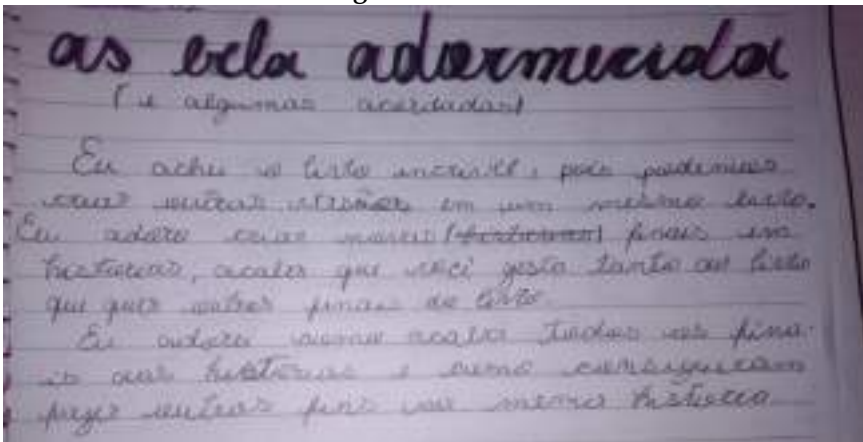 as bela adormecida
(e algumas acordadas)
Eu achei o livro incrível, pois podemos
criar outras versões em um mesmo livro.
Eu adoro criar novos finais em
histórias, que você gosta tanto do livro
que quer outros finais do livro.
Eu adorei como todos os fina-
is das histórias e como conseguiram
fazer outros fins mesma história